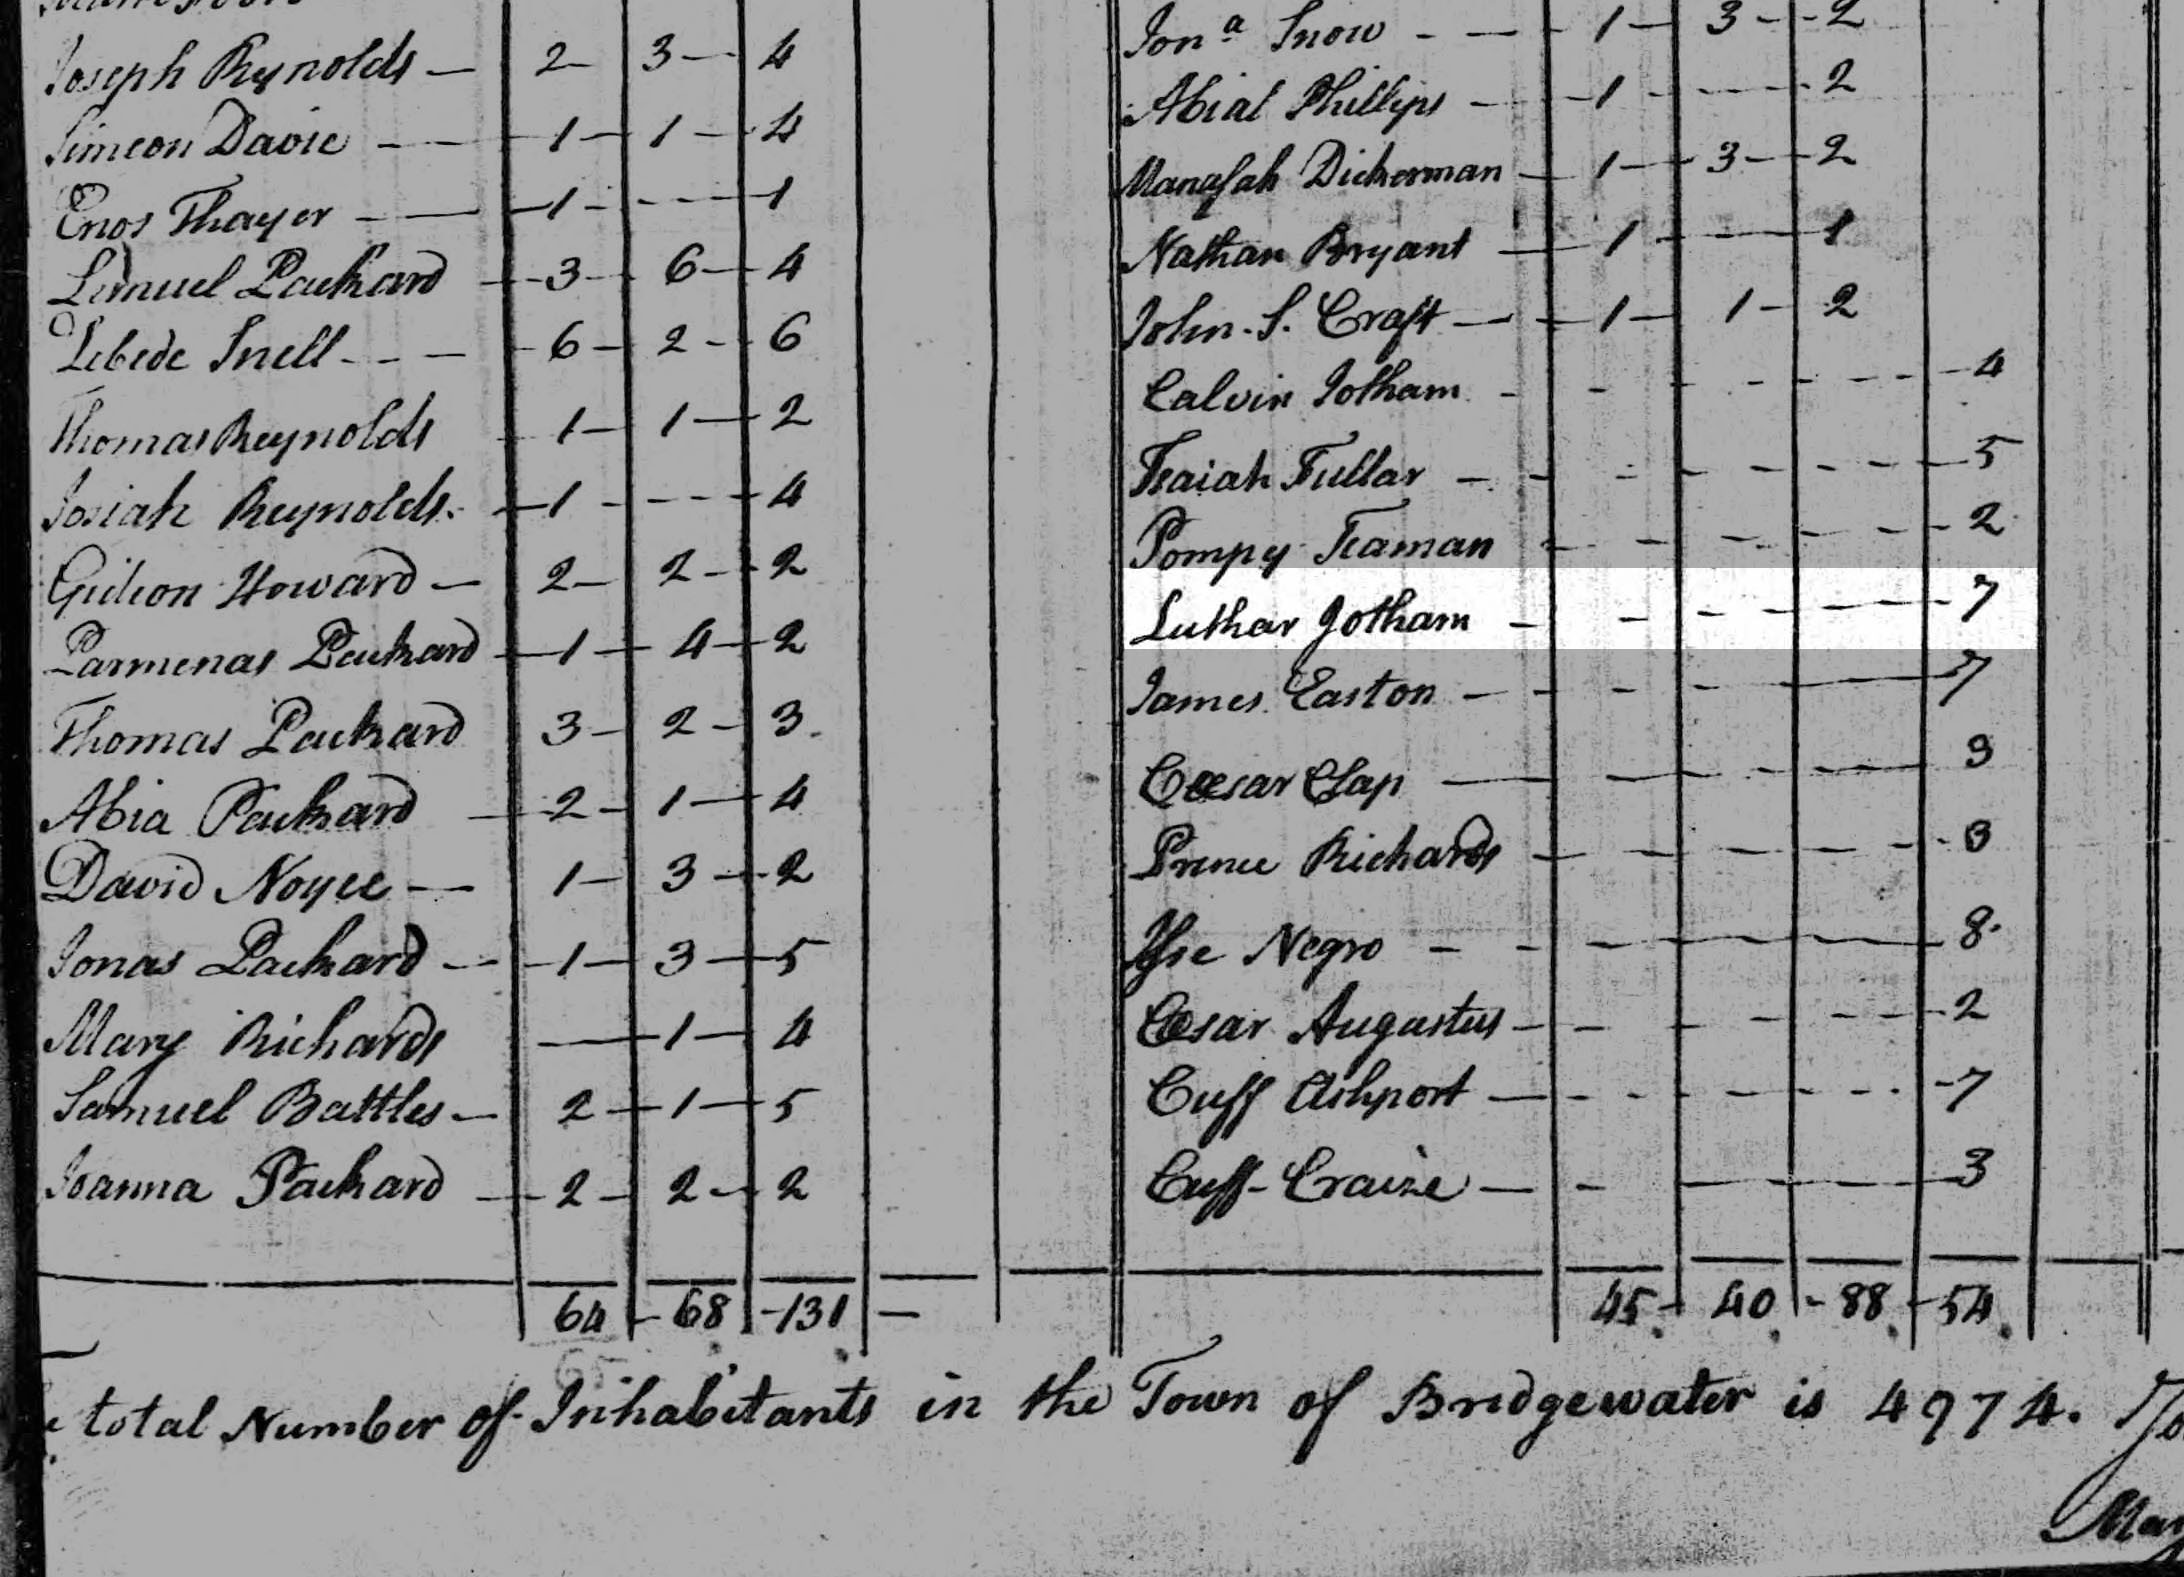 Joseph Reynolds — 2 — 3 — 4
Simeon Davie — — 1 — 1 — 4
Enos Thayer — — 1 - - - - 1
Lemuel Packard — 3 — 6 — 4
Zebede Snell - - — 6 — 2 - - 6
Thomas Reynolds - 1 — 1 — 2
Josiah Reynolds. — 1 - - - - 4
Gideon Howard — 2 — 2 - - 2
Parmenas Packard — 1 — 4 — 2
Thomas Packard 3 — 2 — 3.
Abia Packard — 2 — 1 — 4
David Noyce — 1 — 3 — 2
Jonas Packard — 1 — 3 — 5
Mary Richards — 1 — 4
Samuel Battles — 2 — 1 — 5
Joanna Packard — 2 — 2 — 2
64 - 68 - 131 —
Jonª Snow - — - 1 — 3 - - 2
Abial Phillips — 1 - - - - 2
Manasah Dickerman — 1 — 3 — 2
Nathan Bryant — 1 - - - 1
John. S. Craft — 1 — 1 — 2
Calvin Jotham - - - - - - 4
Isaiah Fullar — - - - - - 5
Pompy Teaman - - - - - 2
Luthar Jotham - - - - — 7
James Easton — - - - — 7
Cæsar Clap — — - - - 3
Prince Richards — - - - - 3
Negro — - - — — 8.
Cæsar Augustus — - - - - 2
Cuff Ashport — - - - - - 7
Cuff- Craize — - — — 3
45 - 40 - 88 - 54
total Number of Inhabitants in the Town of Bridgewater is 4974.